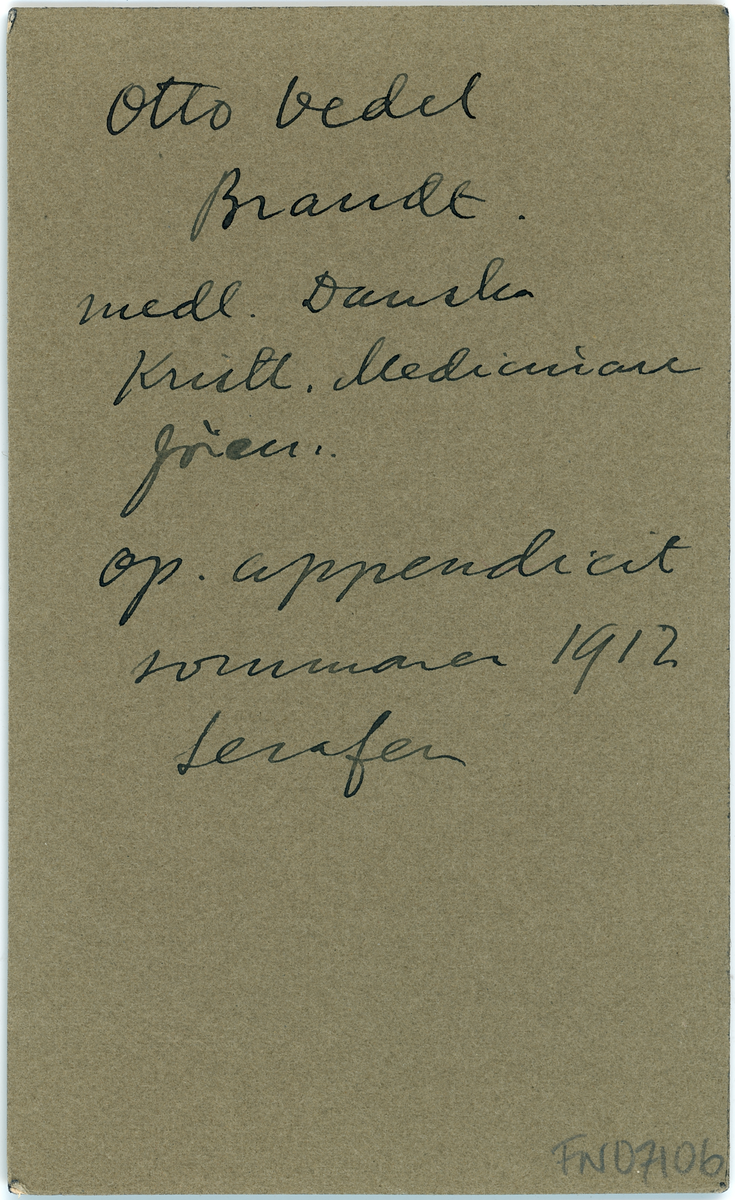 Otto Vedel
Brandt.
medl. Danska
Kristl. Medicinare
fören.
op. appendicit
sommaren 1912
Serafen
FN07106